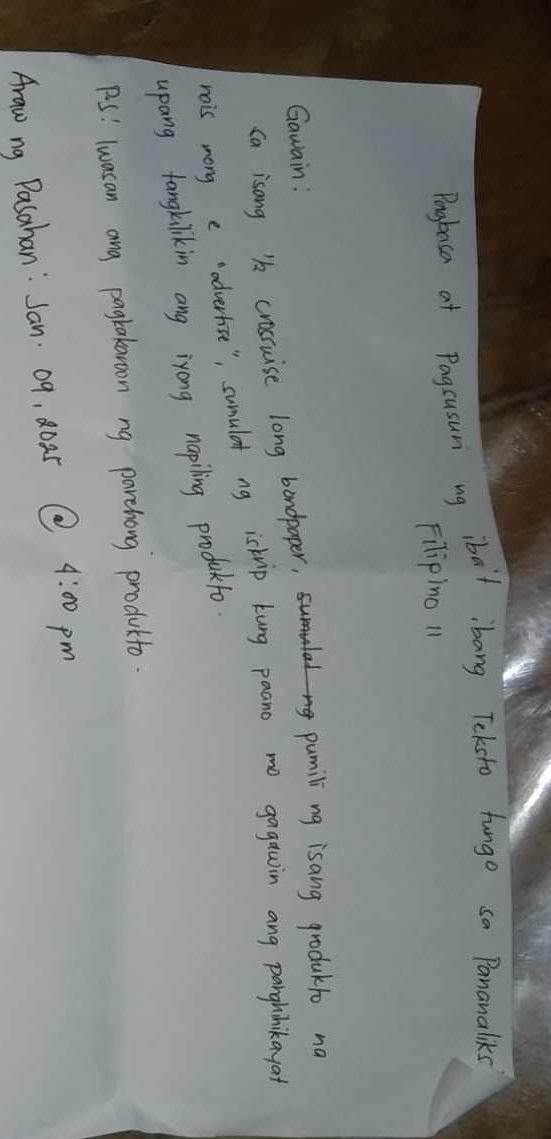 Pagbasa at Pagsusuri ng iba't ibang Teksto tungo sa Pananaliksi
Filipino 11
Gawain:
Sa isang 1/2 crosswise long bondpaper, sumulat ng pumili ng isang produkto na
nais mong e "advertise", sumulat ng iskrip kung paano mo gagawin ang panghihikayat
upang tangkilikin ang iyong napiling produkto.
PS: Iwasan ang pagkakaroon ng parehong produkto.
Araw ng Pasahan: Jan. 09, 2025 @ 4:00 pm